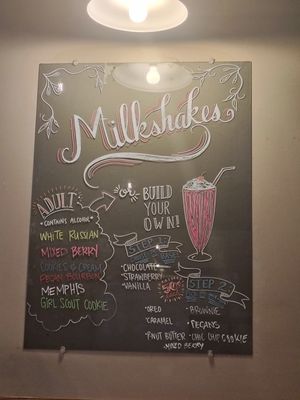 Milkshakes
ADULT
*CONTAINS ALCOHOL*
WHITE RUSSIAN
MIXED BERRY
COOKIES & CREAM
PECAN BOURBON
MEMPHIS
GIRL SCOUT COOKIE
or
BUILD
YOUR
OWN!
STEP 1
• CHOCOLATE
• STRAWBERRY
• VANILLA
STEP 2
• OREO
• CARAMEL
• PNUT BUTTER
• MIXED BERRY
• BROWNIE
• PECANS
• CHOC CHIP COOKIE